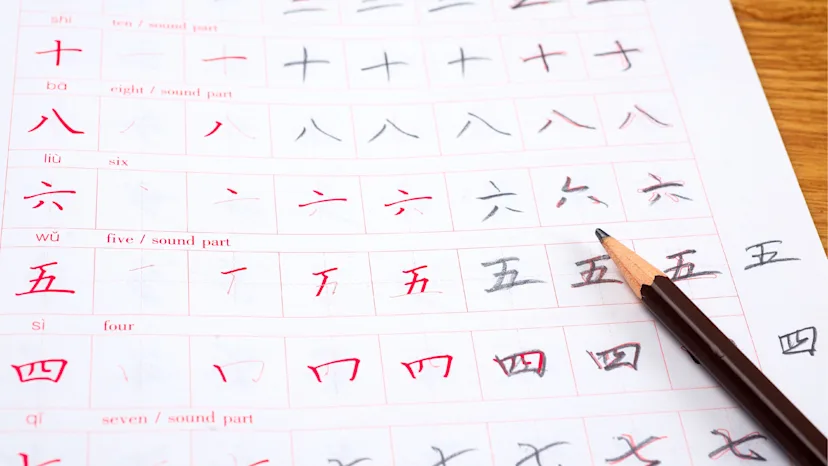 shí ten / sound part
十 十 十 十 十 十
bā eight / sound part
八 八 八 八 八 八
liù six
六 六 六 六
wǔ five / sound part
五 五 五 五 五 五
sì four
四 四 四 四
qī seven / sound part
七 七 七 七 七